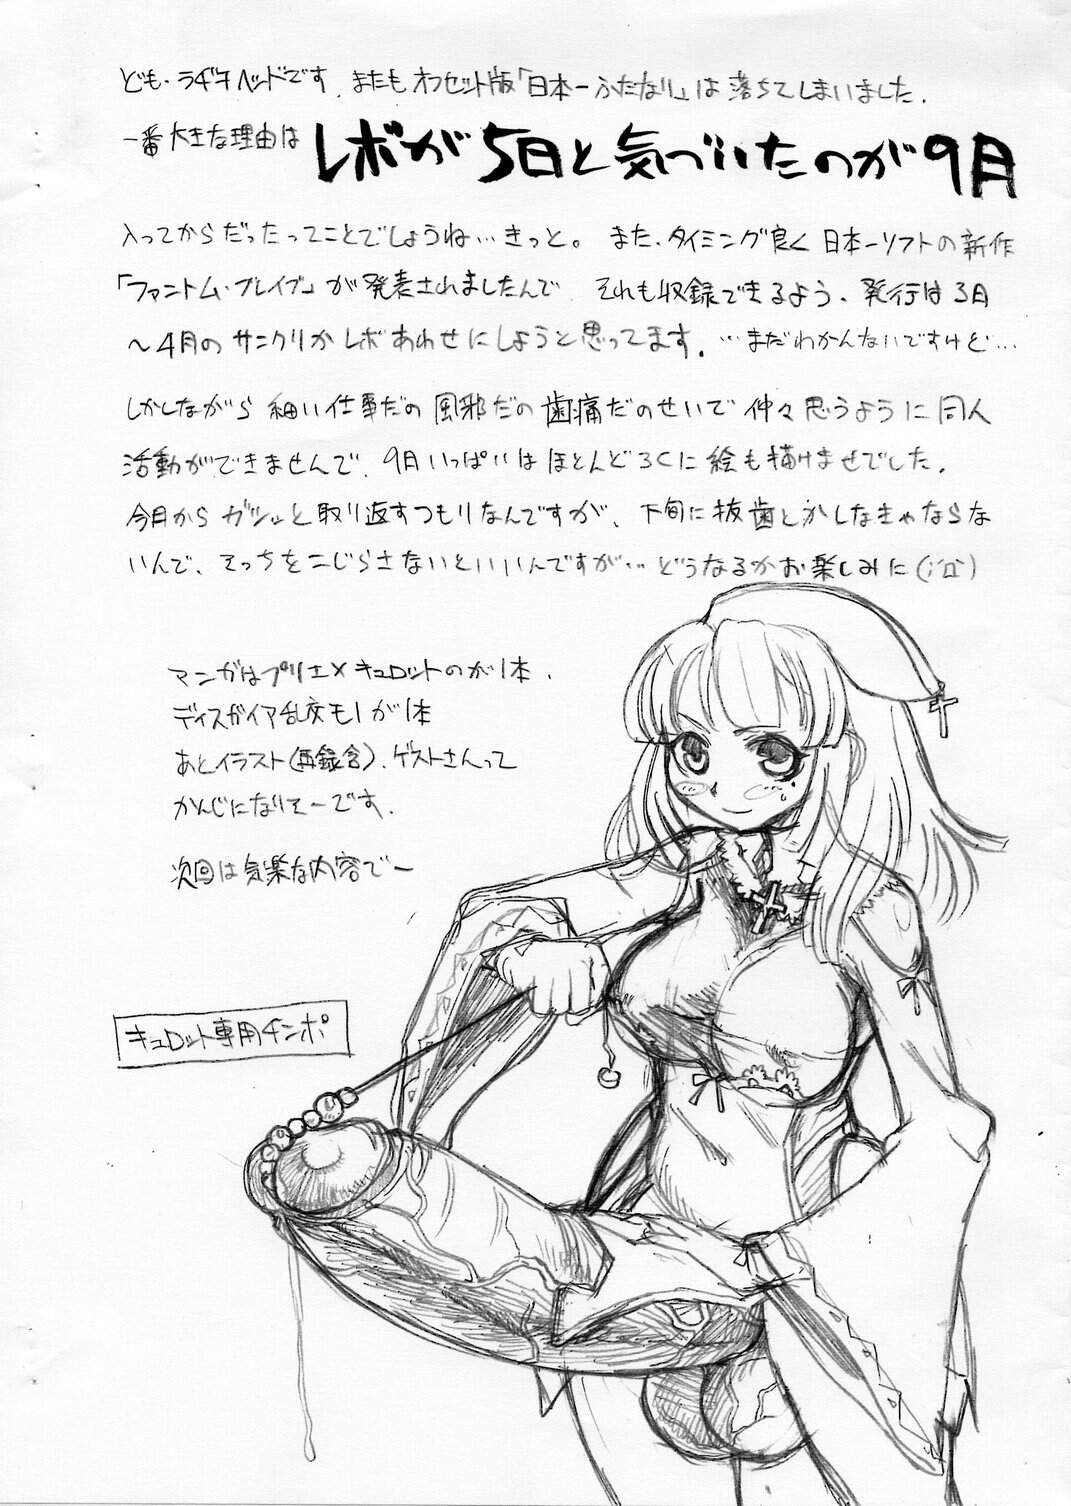 ども・ラヂオヘッドです。またもオフセット版「日本一ふたなり」は落ちてしまいました。
一番大きな理由は レボが5日と気づいたのが9月
入ってからだったってことでしょうね…きっと。 また、タイミング良く日本一ソフトの新作
「ファントム・ブレイブ」が発表されましたんで それも収録できるよう、発行は3月
～4月のサンクリかレボあわせにしようと思ってます。…まだわかんないですけど…
しかしながら 細い仕事だの風邪だの歯痛だのせいで仲々思うように同人
活動ができませんで、9月いっぱいはほとんどろくに絵も描けませでした。
今月からガツッと取り返すつもりなんですが、下旬に抜歯とかしなきゃならな
いんで、そっちをこじらさないといいんですが…どうなるかお楽しみに(;´Д`)
マンガはプリエ×キュロットのが1本、
ディスガイア乱交モノが1本
あとイラスト(再録含)、ゲストさんって
かんじになりそーです。
次回は気楽な内容でー
キュロット専用チンポ